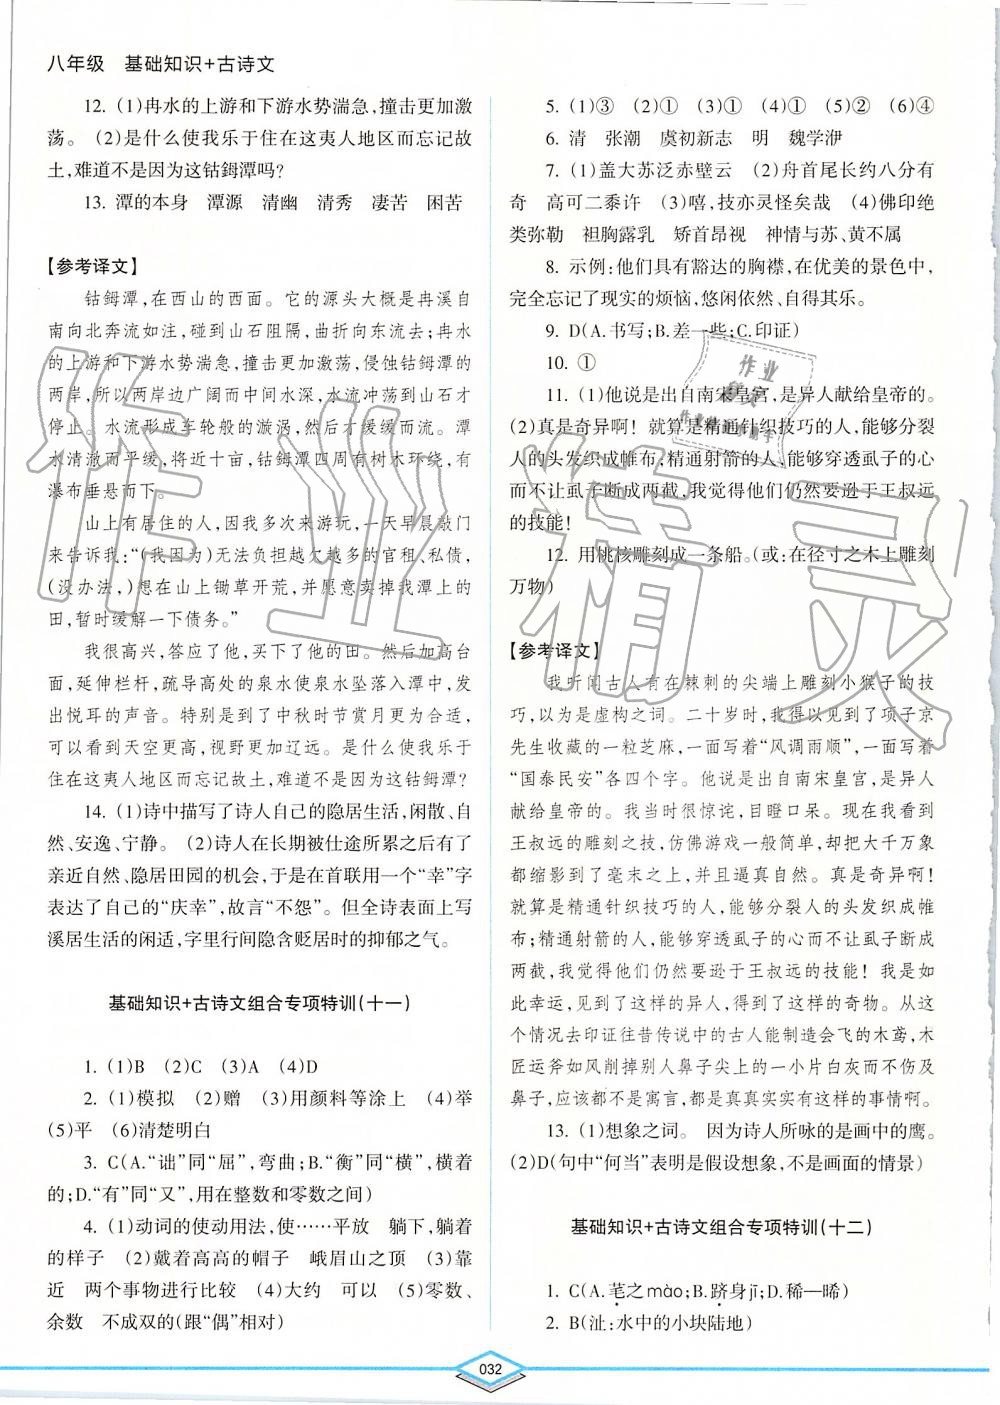 八年级　基础知识+古诗文
12. (1)冉水的上游和下游水势湍急,撞击更加激
荡。 (2)是什么使我乐于住在这夷人地区而忘记故
土,难道不是因为这钴鉧潭吗?
13. 潭的本身　潭源　清幽　清秀　凄苦　困苦
【参考译文】
钴鉧潭,在西山的西面。它的源头大概是冉溪自
南向北奔流如注,碰到山石阻隔,曲折向东流去;冉水
的上游和下游水势湍急,撞击更加激荡,侵蚀钴鉧潭的
两岸,所以两岸边广阔而中间水深,水流冲荡到山石才
停止。水流形成车轮般的漩涡,然后才缓缓而流。潭
水清澈而平缓,将近十亩,钴鉧潭四周有树木环绕,有
瀑布垂悬而下。
山上有居住的人,因我多次来游玩,一天早晨敲门
来告诉我:“(我因为)无法负担越欠越多的官租、私债,
(没办法,)想在山上锄草开荒,并愿意卖掉我潭上的
田,暂时缓解一下债务。”
我很高兴,答应了他,买下了他的田。然后加高台
面,延伸栏杆,疏导高处的泉水使泉水坠落入潭中,发
出悦耳的声音。特别是到了中秋时节赏月更为合适,
可以看到天空更高,视野更加辽远。是什么使我乐于
住在这夷人地区而忘记故土,难道不是因为这钴鉧潭?
14. (1)诗中描写了诗人自己的隐居生活,闲散、自
然、安逸、宁静。 (2)诗人在长期被仕途所累之后有了
亲近自然、隐居田园的机会,于是在首联用一个“幸”字
表达了自己的“庆幸”,故言“不怨”。但全诗表面上写
溪居生活的闲适,字里行间隐含贬居时的抑郁之气。
基础知识+古诗文组合专项特训(十一)
1. (1)B　(2)C　(3)A　(4)D
2. (1)模拟　(2)赠　(3)用颜料等涂上　(4)举
(5)平　(6)清楚明白
3. C(A.“诎”同“屈”,弯曲;B.“衡”同“横”,横着
的;D.“有”同“又”,用在整数和零数之间)
4. (1)动词的使动用法,使……平放　躺下,躺着
的样子　(2)戴着高高的帽子　峨眉山之顶　(3)靠
近　两个事物进行比较　(4)大约　可以　(5)零数、
余数　不成双的(跟“偶”相对)
5. (1)③　(2)①　(3)①　(4)①　(5)②　(6)④
6. 清　张潮　虞初新志　明　魏学洢
7. (1)盖大苏泛赤壁云　(2)舟首尾长约八分有
奇　高可二黍许　(3)嘻,技亦灵怪矣哉　(4)佛印绝
类弥勒　袒胸露乳　矫首昂视　神情与苏、黄不属
8. 示例:他们具有豁达的胸襟,在优美的景色中,
完全忘记了现实的烦恼,悠闲依然、自得其乐。
9. D(A.书写;B.差一些;C.印证)
10. ①
11. (1)他说是出自南宋皇宫,是异人献给皇帝的。
(2)真是奇异啊! 就算是精通针织技巧的人,能够分裂
人的头发织成帷布;精通射箭的人,能够穿透虱子的心
而不让虱子断成两截,我觉得他们仍然要逊于王叔远
的技能!
12. 用桃核雕刻成一条船。(或:在径寸之木上雕刻
万物)
【参考译文】
我听闻古人有在棘刺的尖端上雕刻小猴子的技
巧,以为是虚构之词。二十岁时,我得以见到了项子京
先生收藏的一粒芝麻,一面写着“风调雨顺”,一面写着
“国泰民安”各四个字。他说是出自南宋皇宫,是异人
献给皇帝的。我当时很惊诧,目瞪口呆。现在我看到
王叔远的雕刻之技,仿佛游戏一般简单,却把大千万象
都缩影到了毫末之上,并且逼真自然。真是奇异啊!
就算是精通针织技巧的人,能够分裂人的头发织成帷
布;精通射箭的人,能够穿透虱子的心而不让虱子断成
两截,我觉得他们仍然要逊于王叔远的技能! 我是如
此幸运,见到了这样的异人,得到了这样的奇物。从这
个情况去印证往昔传说中的古人能制造会飞的木鸢,木
匠运斧如风削掉别人鼻子尖上的一小片白灰而不伤及
鼻子,应该都不是寓言,都是真真实实有这样的事情啊。
13. (1)想象之词。 因为诗人所咏的是画中的鹰。
(2)D(句中“何当”表明是假设想象,不是画面的情景)
基础知识+古诗文组合专项特训(十二)
1. C(A.芼之mào;B.跻身jī;D.稀—晞)
2. B(沚:水中的小块陆地)
032
作业精灵